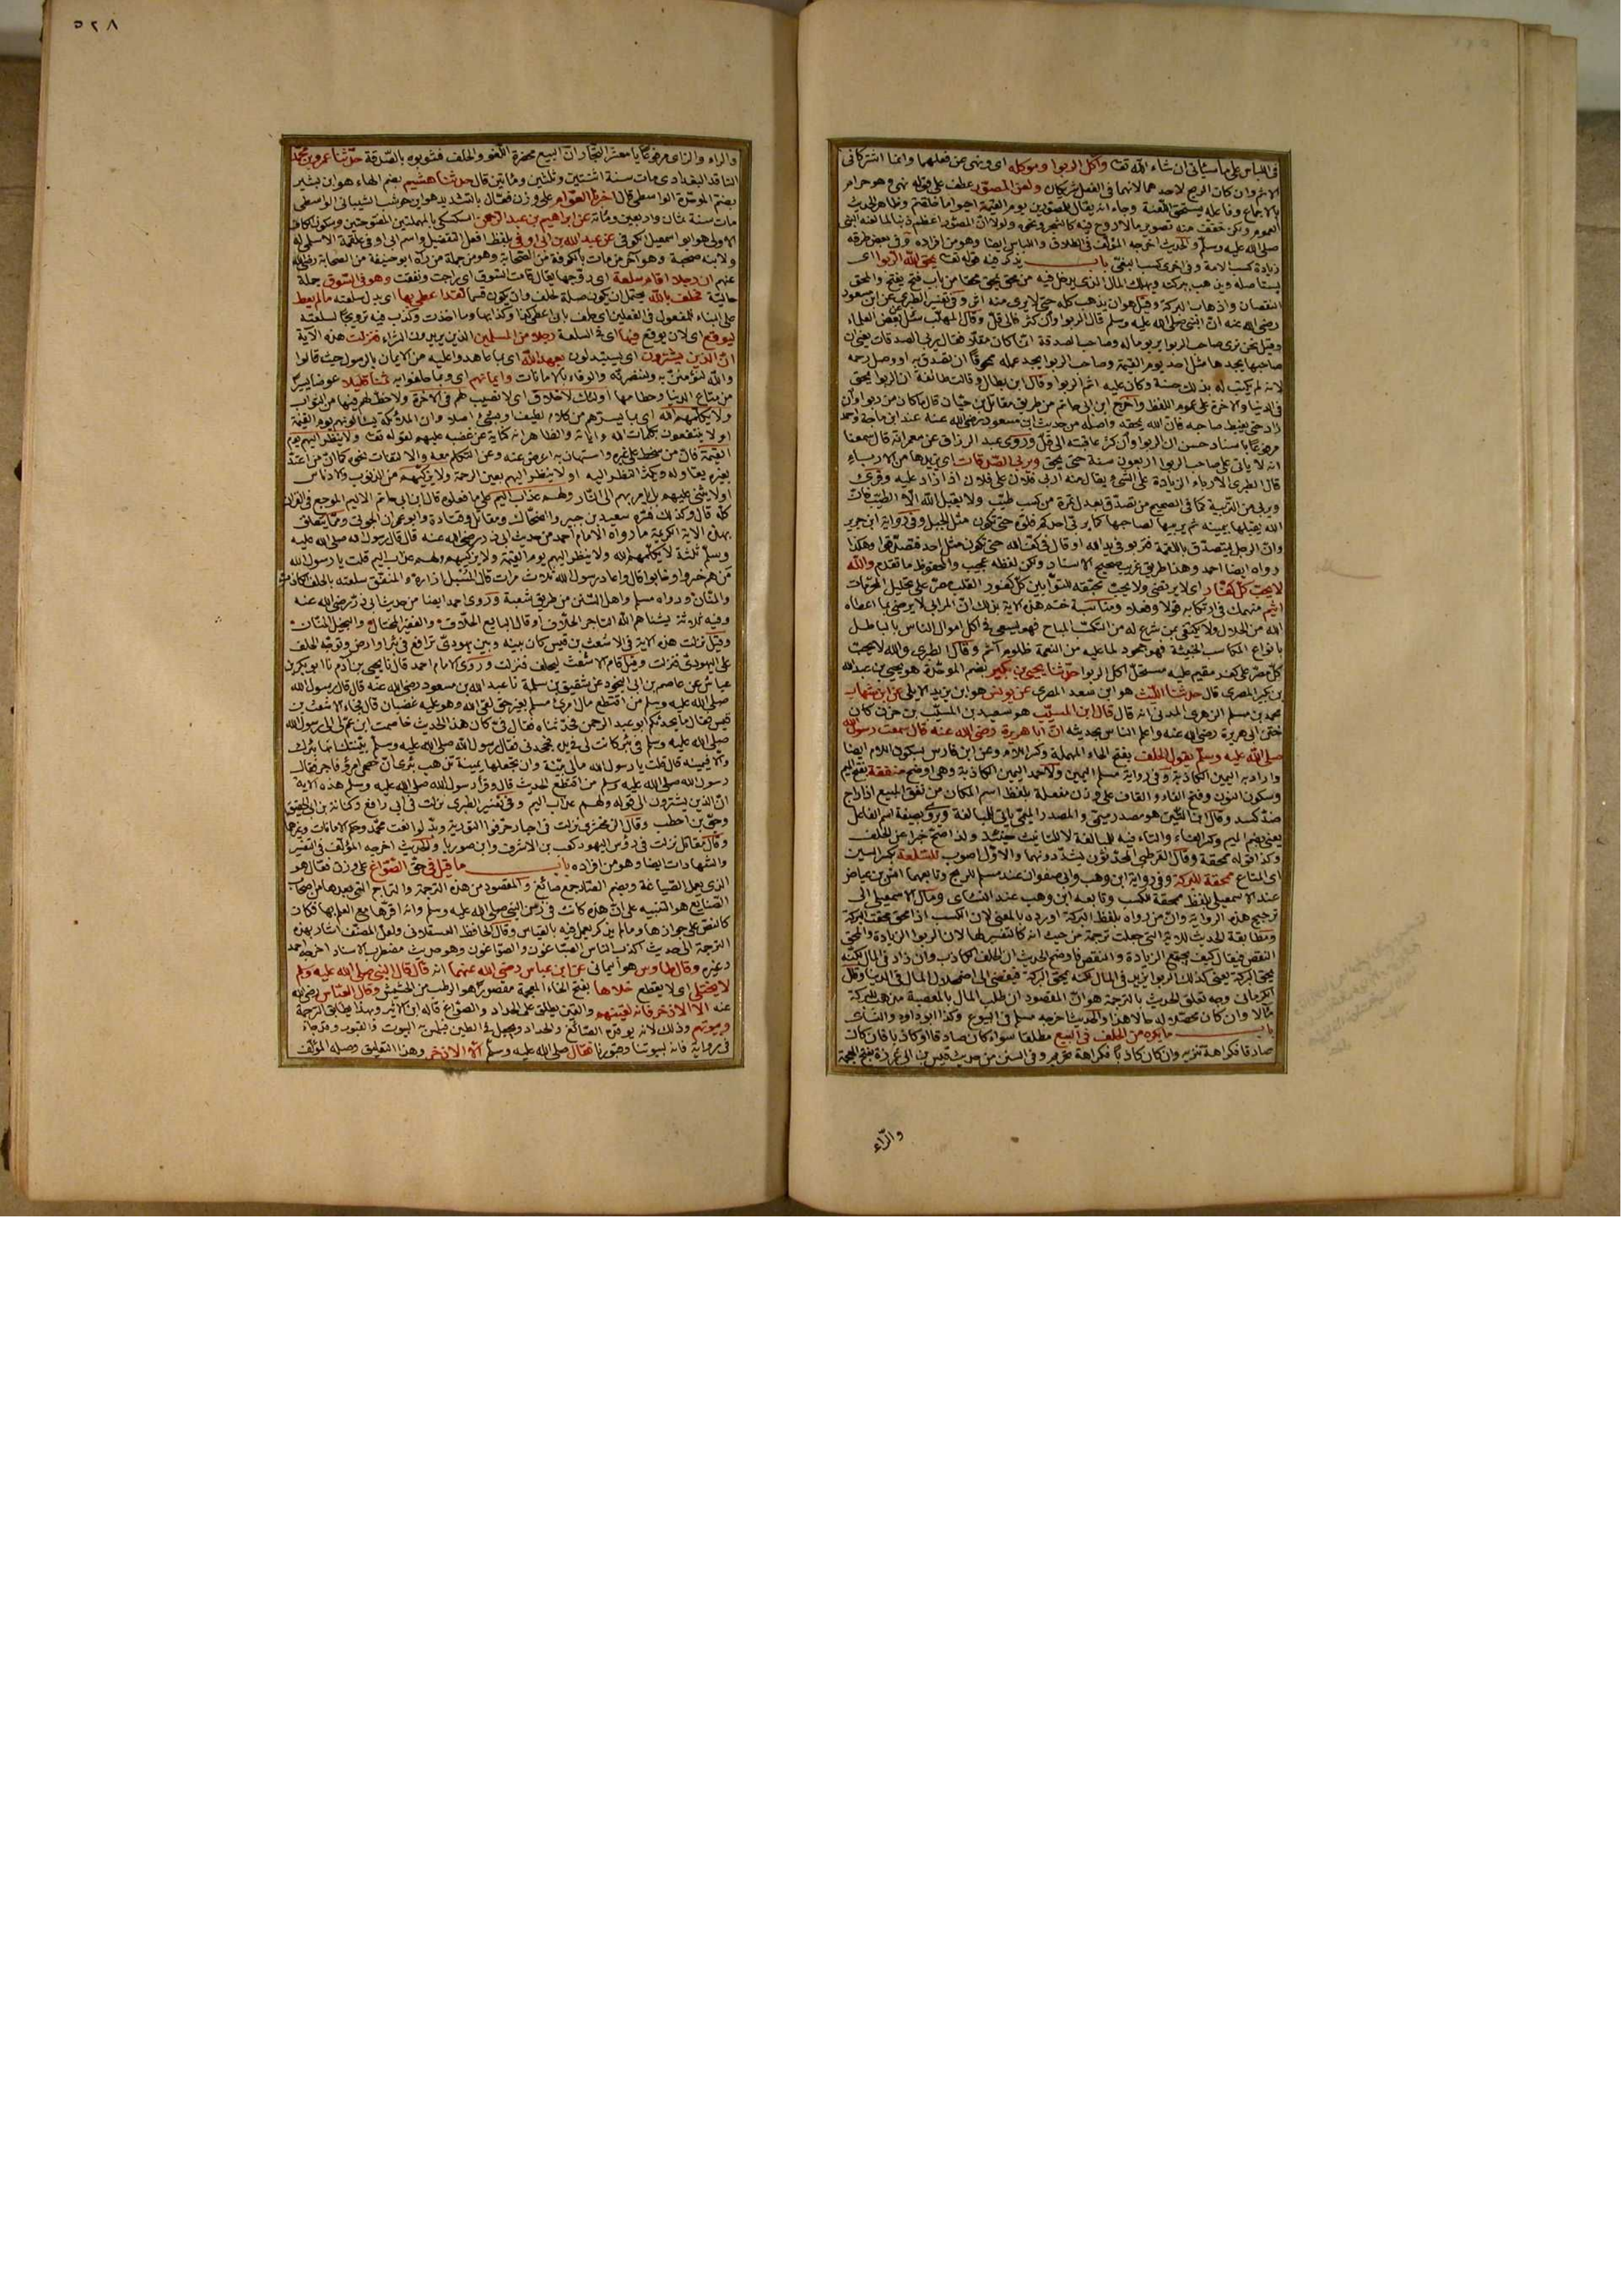 في اللباس على ما سيأتي ان شاء الله تعا وآكل الربوا وموكله اى ونهى عن فعلهما وانما اشتركا في
الاثم وان كان الربح لاحدهما لانهما في الفعل شريكان ولعن المصور عطف على قوله نهى وهو حرام
بالاجماع وفاعله يستحق اللعنة وجاء انه يقال للمصورين يوم القيمة احيوا ما خلقتم وظاهر الحديث
العموم ولكن خفف منه تصوير ما لا روح فيه كالشجر ونحوه
صلى الله عليه وسلم والحديث اخرجه المؤلف في الطلاق واللباس ايضا وهو من افراده وفي بعض طرقه
زيادة كسب الامة وفي اخرى كسب البغي باب يذكر فيه قوله تعا يمحق الله الربوا اى
يستأصله ويذهب ببركته ويهلك المال الذى يدخل فيه من محق يمحق محقا من باب فتح يفتح والمحق
النقصان وذهاب البركة وقيل هو ان يذهب كله حتى لا يرى منه اثر وفي تفسير الطبرى عن ابن مسعود
رضى الله عنه ان النبى صلى الله عليه وسلم قال الربوا وان كثر فالى قل وقال المهلب سئل بعض العلماء
وقيل نحن نرى صاحب الربوا يربو ماله وصاحب الصدقة انما كان مقلا فقال يربى الصدقات يعنى ان
صاحبها يجدها مثل احد يوم القيمة وصاحب الربوا يجد عمله ممحوقا ان تصدق به او وصل رحمه
لانه لم يكتب له بذلك حسنة وكان عليه اثم الربوا وقال ابن بطال وقالت طائفة ان الربوا يمحق
في الدنيا والاخرة على عموم اللفظ واخرج ابن ابى حاتم من طريق مقاتل بن حيان قال ما كان من ربوا وان
زاد حتى يغبط صاحبه فان الله يمحقه واصله من حديث ابن مسعود رضى الله عنه عند ابن ماجة واحمد
مرفوعا باسناد حسن ان الربوا وان كثر عاقبته الى قل وروى عبد الرزاق عن معمر انه قال سمعنا
انه لا يأتى على صاحب الربوا اربعون سنة حتى يمحق ويربى الصدقات اى يزيدها من الارباء
قال الطبرى الارباء الزيادة على الشئ يقال منه اربى فلان على فلان اذا زاد عليه وقرئ
ويربى من التربية كما في الصحيح من تصدق بعدل تمرة من كسب طيب ولا يقبل الله الا الطيب فان
الله يقبلها بيمينه ثم يربيها لصاحبها كما يربى احدكم فلوه حتى تكون مثل الجبل وفي رواية ابن جرير
وان الرجل ليتصدق باللقمة فتربو في يد الله او قال في كف الله حتى تكون مثل احد فتصدقوا وهكذا
رواه ايضا احمد وهذا طريق غريب صحيح الاسناد ولكن لفظه عجيب والمحفوظ ما تقدم والله
لا يحب كل كفار اى لا يرتضى ولا يحب كل كفور القلب مصر على تحليل المحرمات
اثيم منهمك في ارتكابه قولا وفعلا ومناسبة ختم هذه الاية بذلك ان المرابى لا يرضى بما اعطاه
الله من الحلال ولا يكتفى بمن شرع له من التكسب المباح فهو يسعى في اكل اموال الناس بالباطل
بانواع المكاسب الخبيثة فهو جحود لما عليه من النعمة ظلوم آثم وقال الطبرى والله لا يحب
كل مصر على كفر مقيم عليه مستحل اكل الربوا حدثنا يحيى بن بكير بضم الموحدة هو يحيى بن عبد الله
بن بكير المصرى قال حدثنا الليث هو ابن سعد المصرى عن يونس هو ابن يزيد الايلى عن ابن شهاب
محمد بن مسلم الزهرى المدنى انه قال قال ابن المسيب هو سعيد بن المسيب بن حزن كان
ختن ابى هريرة رضى الله عنه واعلم الناس بحديثه ان ابا هريرة رضى الله عنه قال سمعت رسول الله
صلى الله عليه وسلم يقول الحلف بفتح الحاء المهملة وكسر اللام وعن ابن فارس بسكون اللام ايضا
واراد به اليمين الكاذبة وفي رواية مسلم اليمين ولاحمد اليمين الكاذبة وهى اوضح منفقة بفتح الميم
وسكون النون وفتح الفاء والقاف على وزن مفعلة بلفظ اسم المكان من نفق المبيع اذا راج
ضد كسد وقال ابن التين هو مصدر ميمى والمصدر الميمى يأتى للمبالغة ويروى بصيغة اسم الفاعل
يعنى بضم الميم وكسر الفاء والتاء فيه للمبالغة لا للتانيث حينئذ ولذا صح خبرا عن الحلف
وكذا قوله ممحقة وقال القرطبى المحدثون يشددونها والاول اصوب للسلعة بكسر السين
اى المتاع ممحقة للبركة وفي رواية ابن وهب وابى صفوان عند مسلم للربح وتابعهما انس بن عياض
عند الاسمعيلى بلفظ ممحقة للكسب وتابعه ابن وهب عند النسائى ومال الاسمعيلى الى
ترجيح هذه الرواية وان من رواه بلفظ البركة اورده بالمعنى لان الكسب اذا محق محقت البركة
ومطابقة الحديث للاية التى جعلت ترجمة من حيث انه كالتفسير لها لان الربوا الزيادة والمحق
النقص فيقال كيف يجتمع الزيادة والنقص فاوضح الحديث ان الحلف الكاذب وان زاد في المال لكنه
يمحق البركة يعنى كذلك الربوا يزيد في المال لكنه يمحق البركة فيفضى الى اضمحلال المال في الدنيا وقال
الكرمانى وجه تعلق الحديث بالترجمة هو ان المقصود ان طلب المال بالمعصية مذهب للبركة
مآلا وان كان محصلا له حالا هذا والحديث اخرجه مسلم في البيوع وكذا ابو داود والنسائى
باب ما يكره من الحلف في البيع مطلقا سواء كان صادقا او كاذبا فان كان
صادقا فكراهة تنزيه وان كان كاذبا فكراهة تحريم وفي السنن من حديث قيس بن ابى غرزة بفتح المعجمة
والراء
٥٢٨
والراء والزاى مرفوعا يا معشر التجار ان البيع يحضره اللغو والحلف فشوبوه بالصدقة حدثنا عمرو بن محمد
الناقد البغدادى مات سنة اثنتين وثلثين ومأتين قال حدثنا هشيم بضم الهاء هو ابن بشير
بضم الموحدة الواسطى قال اخبرنا العوام على وزن فعال بالتشديد هو ابن حوشب الشيبانى الواسطى
مات سنة ثمان واربعين ومائة عن ابراهيم بن عبد الرحمن السكسكى بالمهملتين المفتوحتين وسكون الكاف
الاولى هو ابو اسمعيل الكوفى عن عبد الله بن ابى اوفى بلفظ افعل التفضيل واسم ابى اوفى علقمة الاسلمى له
ولابنه صحبة وهو آخر من مات بالكوفة من الصحابة وهو من جملة من رآه ابو حنيفة من الصحابة رضى الله
عنهم ان رجلا اقام سلعة اى روجها يقال قامت السوق اى راجت ونفقت وهو في السوق جملة
حالية فحلف بالله يحتمل ان يكون صلة لحلف وان يكون قسما لقد اعطى بها اى بدل سلعته ما لم يعط
على البناء للمفعول في الفعلين اى حلف بانه اعطى كذا وكذا بها وما اخذت وكذب فيه ترويجا لسلعته
ليوقع اى لان يوقع فيها اى في السلعة رجلا من المسلمين الذين يريدون الشراء فنزلت هذه الآية
ان الذين يشترون اى يستبدلون بعهد الله اى بما عاهدوا عليه من الايمان بالرسول حيث قالوا
والله لنؤمنن به ولننصرنه والوفاء بالامانات وايمانهم اى وبما حلفوا به ثمنا قليلا عوضا يسيرا
من متاع الدنيا وحطامها اولئك لا خلاق اى لا نصيب لهم في الاخرة ولا حظ لهم فيها من الثواب
ولا يكلمهم الله اى بما يسرهم من كلام لطيف او بشئ اصلا وان الملائكة يسألونهم يوم القيمة
او لا ينتفعون بكلمات الله وآياته والظاهر انه كناية عن غضبه عليهم لقوله تعا ولا ينظر اليهم يوم
القيمة فان من سخط على غيره واستهان به اعرض عنه وعن التكلم معه والالتفات نحوه كما ان من اعتد
بغيره يقاوله ويكثر النظر اليه او لا ينظر اليهم بعين الرحمة ولا يزكيهم من الذنوب والادناس
او لا يثنى عليهم بل يأمر بهم الى النار ولهم عذاب اليم على ما فعلوه قال ابن ابى حاتم الاليم الموجع في القرآن
كله قال وكذلك فسره سعيد بن جبير والضحاك ومقاتل وقتادة وابو عمران الجونى ومما يتعلق
بهذه الاية الكريمة ما رواه الامام احمد من حديث ابى ذر رضى الله عنه قال قال رسول الله صلى الله عليه
وسلم ثلثة لا يكلمهم الله ولا ينظر اليهم يوم القيمة ولا يزكيهم ولهم عذاب اليم قلت يا رسول الله
من هم خسروا وخابوا قال واعاد رسول الله ثلاث مرات قال المسبل ازاره والمنفق سلعته بالحلف الكاذب
والمنان ورواه مسلم واهل السنن من طريق شعبة وروى احمد ايضا من حديث ابى ذر رضى الله عنه
وفيه ثلاثة يشناهم الله التاجر الحلاف او قال البايع الحلاف والفقير المختال والبخيل المنان
وقيل نزلت هذه الاية في الاشعث بن قيس كان بينه وبين يهودى ترافع في بئر او ارض وتوجه الحلف
على اليهودى فنزلت وقيل قام الاشعث ليحلف فنزلت وروى الامام احمد قال نا يحيى بن آدم نا ابو بكر بن
عياش عن عاصم بن ابى النجود عن شقيق بن سلمة نا عبد الله بن مسعود رضى الله عنه قال قال رسول الله
صلى الله عليه وسلم من اقتطع مال امرئ مسلم بغير حق لقى الله وهو عليه غضبان قال فجاء الاشعث بن
قيس فقال ما يحدثكم ابو عبد الرحمن فحدثناه فقال في كان هذا الحديث خاصمت ابن عم لى الى رسول الله
صلى الله عليه وسلم في بئر كانت لى في يده فجحدنى فقال رسول الله صلى الله عليه وسلم بينتك انها بئرك
والا فيمينه قال قلت يا رسول الله مالى بينة وان تجعلها بيمينه تذهب بئرى ان خصمى امرؤ فاجر فقال
رسول الله صلى الله عليه وسلم من اقتطع الحديث قال وقرأ رسول الله صلى الله عليه وسلم هذه الاية
ان الذين يشترون الى قوله ولهم عذاب اليم وفي تفسير الطبرى نزلت في ابى رافع وكنانة بن ابى الحقيق
وحيى بن اخطب وقال الزمخشرى نزلت في احبار حرفوا التورية وبدلوا نعت محمد وحكم الامانات وغيرهما
وقال مقاتل نزلت في رؤس اليهود كعب بن الاشرف وابن صوريا والحديث اخرجه المؤلف في التفسير
والشهادات ايضا وهو من افراده باب ما قيل في حق الصواغ على وزن فعال هو
الذى يعمل الصياغة وبضم الصاد جمع صائغ والمقصود من هذه الترجمة والتراجم التى بعدها من اصحاب
الصنايع هو التنبيه على ان هذه كانت في زمن النبى صلى الله عليه وسلم وانه اقرها مع العلم بها فكان
كالنص على جوازها وما لم يذكر يعمل فيه بالقياس وقال الحافظ العسقلانى ولعل المصنف اشار بهذه
الترجمة الى حديث اكذب الناس الصباغون والصواغون وهو حديث مضطرب الاسناد اخرجه احمد
وغيره وقال طاوس هو اليمانى عن ابن عباس رضى الله عنهما انه قال قال النبى صلى الله عليه وسلم
لا يختلى اى لا يقطع خلاها بفتح الخاء المعجمة مقصورا هو الرطب من الحشيش وقال العباس رضى الله
عنه الا الاذخر فانه لقينهم والقين يطلق على الحداد والصواغ قاله ابن الاثير وبهذا يطابق الترجمة
وبيوتهم وذلك لانه يوقده الصائغ والحداد ويجعل في الطين فيطين به البيوت والقبور وقد جاء
في رواية فانه لبيوتنا وقبورنا فقال صلى الله عليه وسلم الا الاذخر وهذا التعليق وصله المؤلف